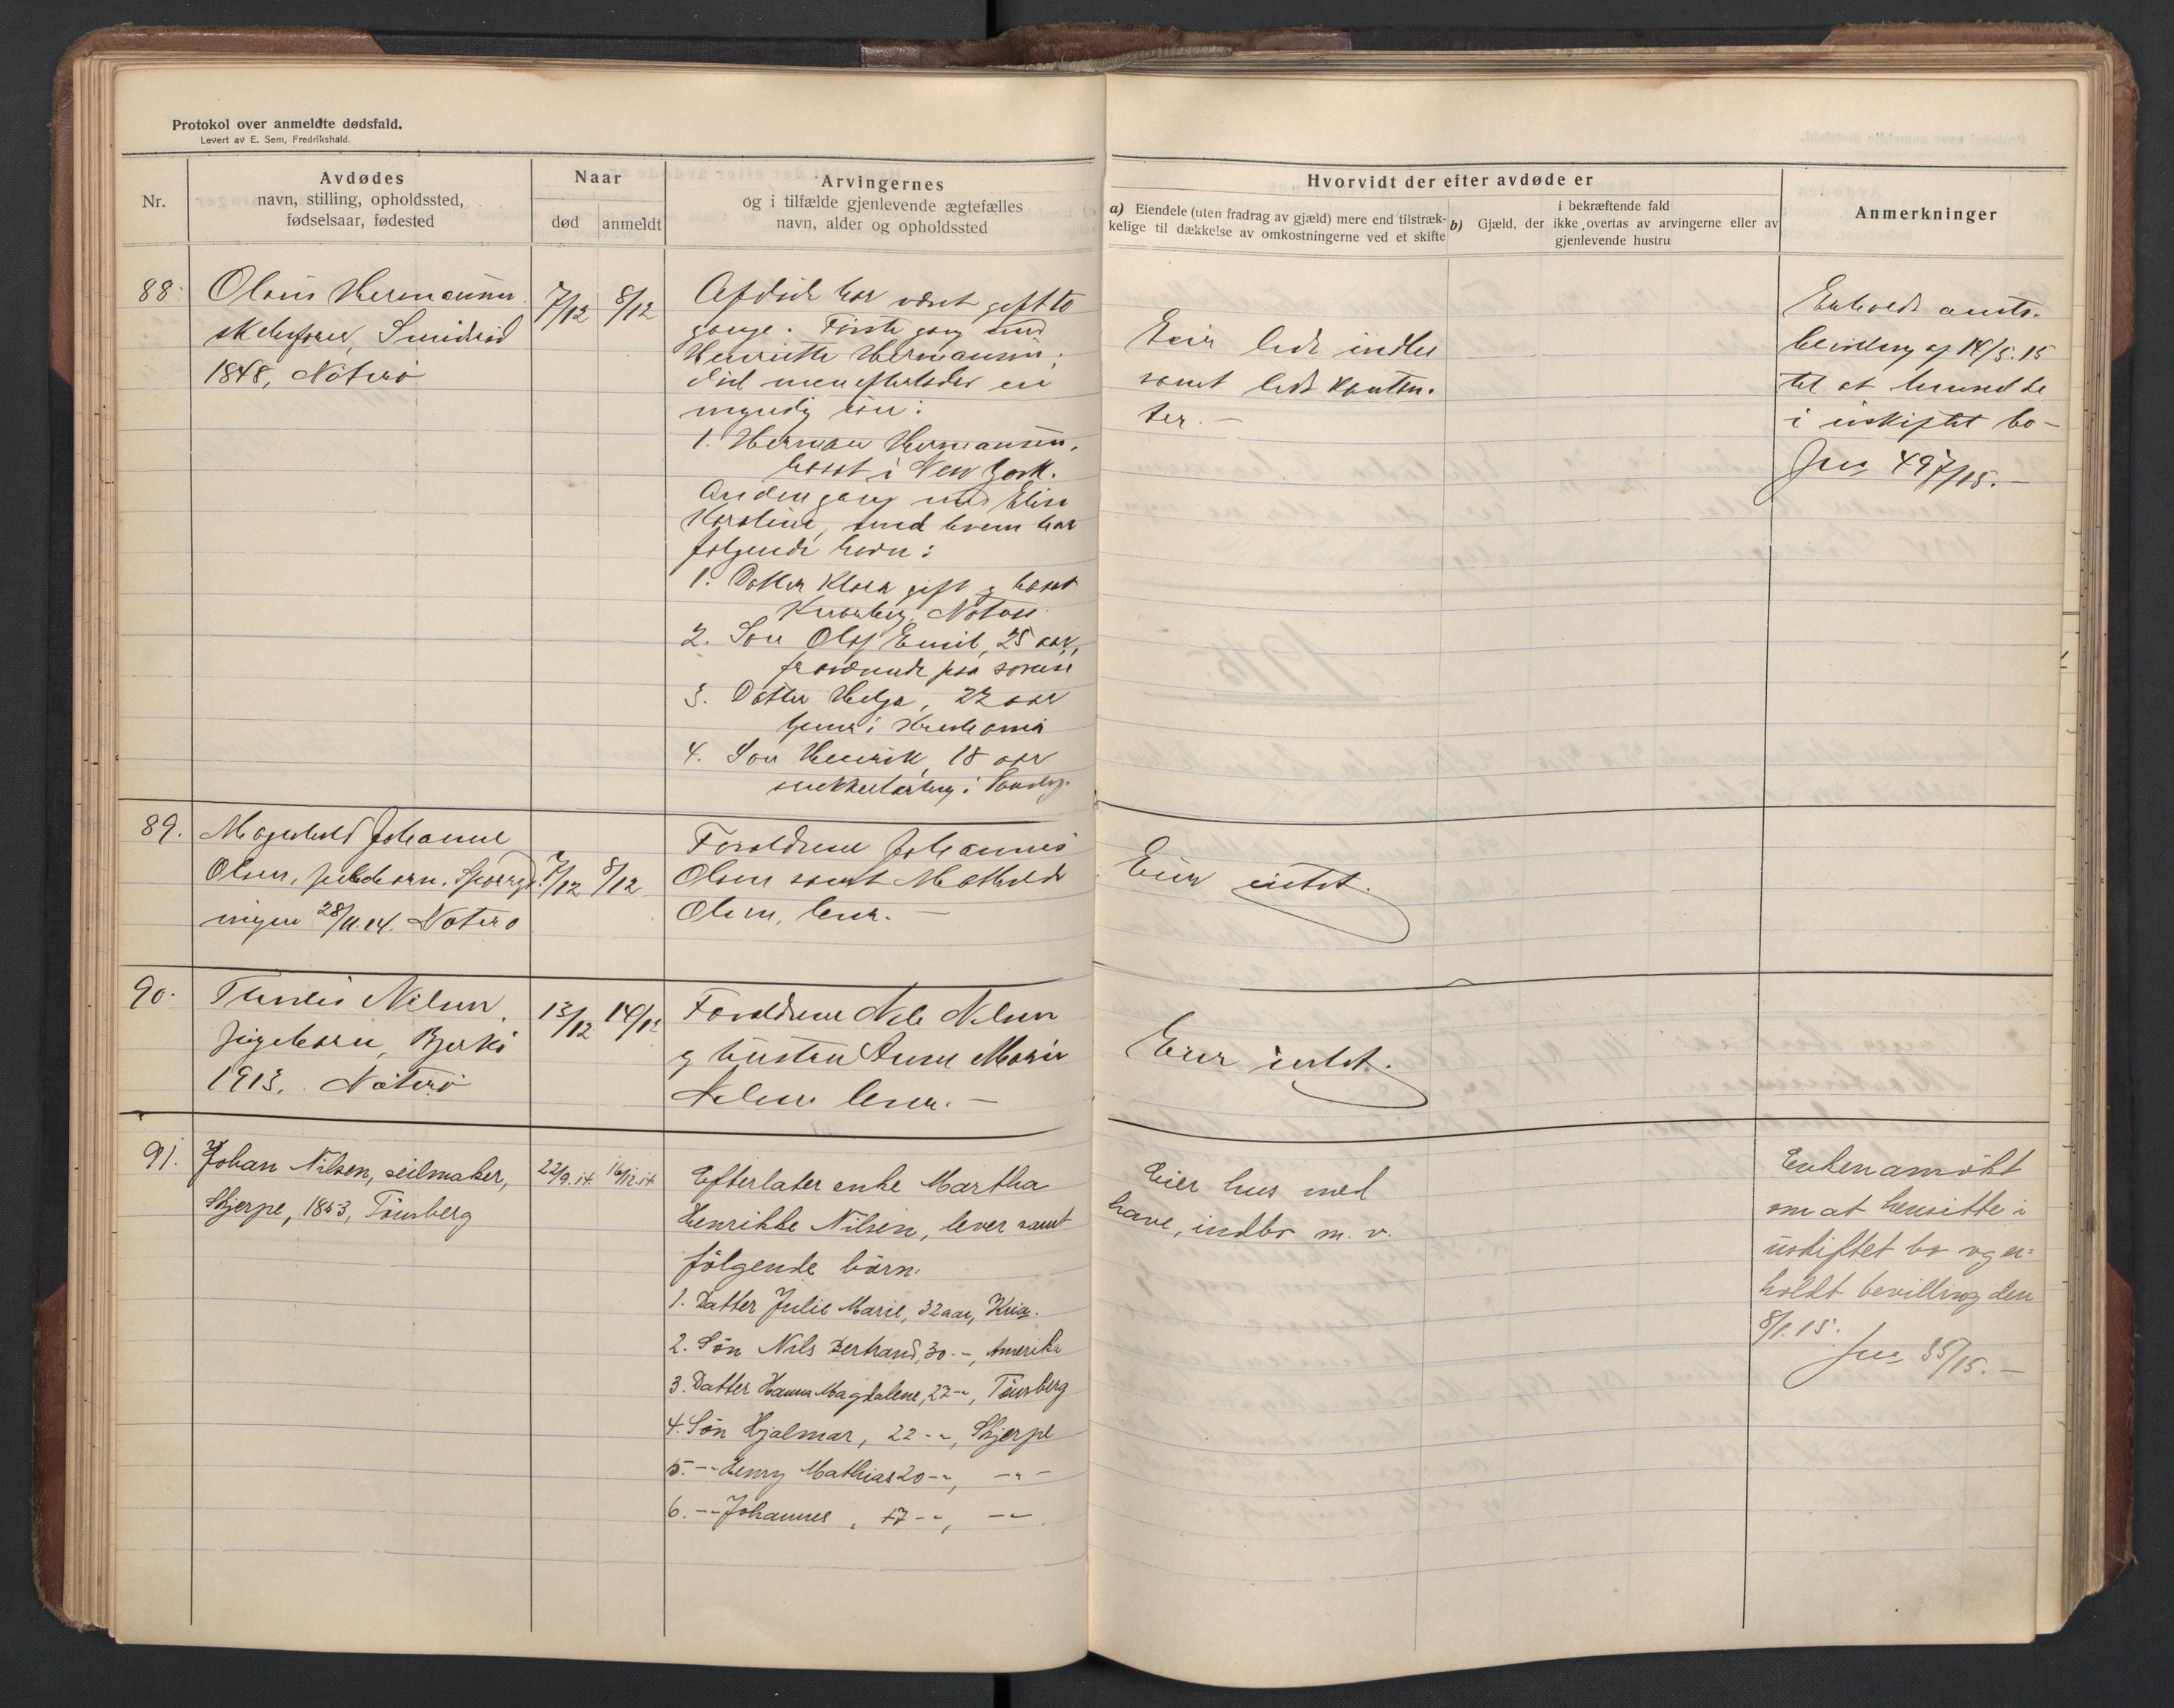 Protokol over anmeldte dødsfald.
Levert av E. Sem, Fredrikshald.
Nr.
Avdødes
navn, stilling, opholdssted,
fødselsaar, fødested
Naar
død
anmeldt
Arvingernes
og i tilfælde gjenlevende ægtefælles
navn, alder og opholdssted
88.
Olaus Hermansen
Smidsrød
1848, Nøterø
7/12 8/12
Afdøde har været gift to
gange. Første gang med
Henriette Hermansen,
død men efterlader en
myndig søn:
1. Herman Hermansen,
bosat i New York.
Anden gang med Elise
Karoline, med hvem har
følgende børn:
1. Datter Klara gift og bosat
Nøterø
2. Søn Olaf Emil, 25 aar,
paa sjøreise
3. Datter Helga, 22 aar
i Kristiania
4. Søn Henrik, 18 aar
i
89.
Magnhild Johanne
Olsen, pikebarn,
28/11.14. Nøterø
7/12 8/12
Forældrene Johannes
Olsen samt Mathilde
Olsen, lever. —
90.
Nilsen,
pigebarn, Bjerkø
1913. Nøterø
13/12 14/12
Forældrene Nils Nilsen
og hustru Anna Marie
Nilsen lever. —
91.
Johan Nilsen, seilmaker,
Skjerpe, 1853, Tønsberg
22/9.14 16/12.14
Efterlater enke Martha
Henrikke Nilsen, lever samt
følgende børn:
1. Datter Julie Marie, 32 aar, Kria.
2. Søn Nils Bertrand, 30 -"-, Amerika
3. Datter Hanna Magdalene, 27 -"-, Tønsberg
4. Søn Hjalmar, 22 -"-, Skjerpe
5. -"- Henry Mathias 20 -"-, -"-
6. -"- Johannes, 17 -"-, -"-
Hvorvidt der efter avdøde er
a) Eiendele (uten fradrag av gjæld) mere end tilstræk-
kelige til dækkelse av omkostningerne ved et skifte
i bekræftende fald
b) Gjæld, der ikke overtas av arvingerne eller av
gjenlevende hustru
Anmerkninger
Eier lidt indbo
samt lidt kontan-
ter. —
Erholdt amts-
bevilling af 14/5.15
til at hensidde
i uskiftet bo —
Jur 497/15. —
Eier intet.
Eier intet.
Eier hus med
have, indbo m. v.
Enken ansøkt
om at hensitte i
uskiftet bo og er-
holdt bevilling den
8/1.15.
Jur 35/15. —